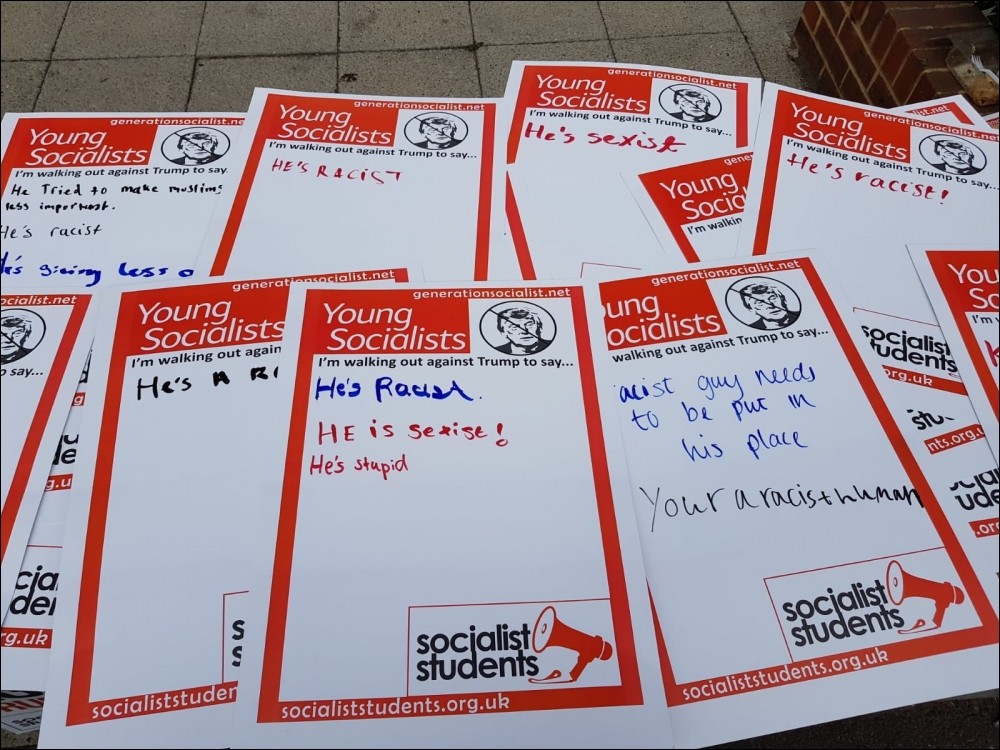 generationsocialist.net
Young
Socialists
I'm walking out against Trump to say
He Tried to make muslims
less important.
He's racist
He's giving less o
generationsocialist.net
Young
Socialists
I'm walking out against Trump to say...
HE'S RACIST
generationsocialist.net
Young
Socialists
I'm walking out against Trump to say...
He's sexist
gene
Young
Socia
I'm walkin
generationsocialist.net
Young
Socialists
I'm walking out against Trump to say...
He's racist!
st.net
socialist
students
.org.uk
stu
nts.org.u
You
So
I'm
ocialist.net
o say...
generationsocialist.net
Young
Socialists
I'm walking out again
He's A
socialiststuden
generationsocialist.net
Young
Socialists
I'm walking out against Trump to say...
He's Racist.
HE is sexise!
He's stupid
socialist
students
socialiststudents.org.uk
generationsocialist.net
ung
ocialists
walking out against Trump to say...
acist guy needs
to be put in
his place
Your a racist human
socialist
students
socialiststudents.org.uk
cia
g.uk